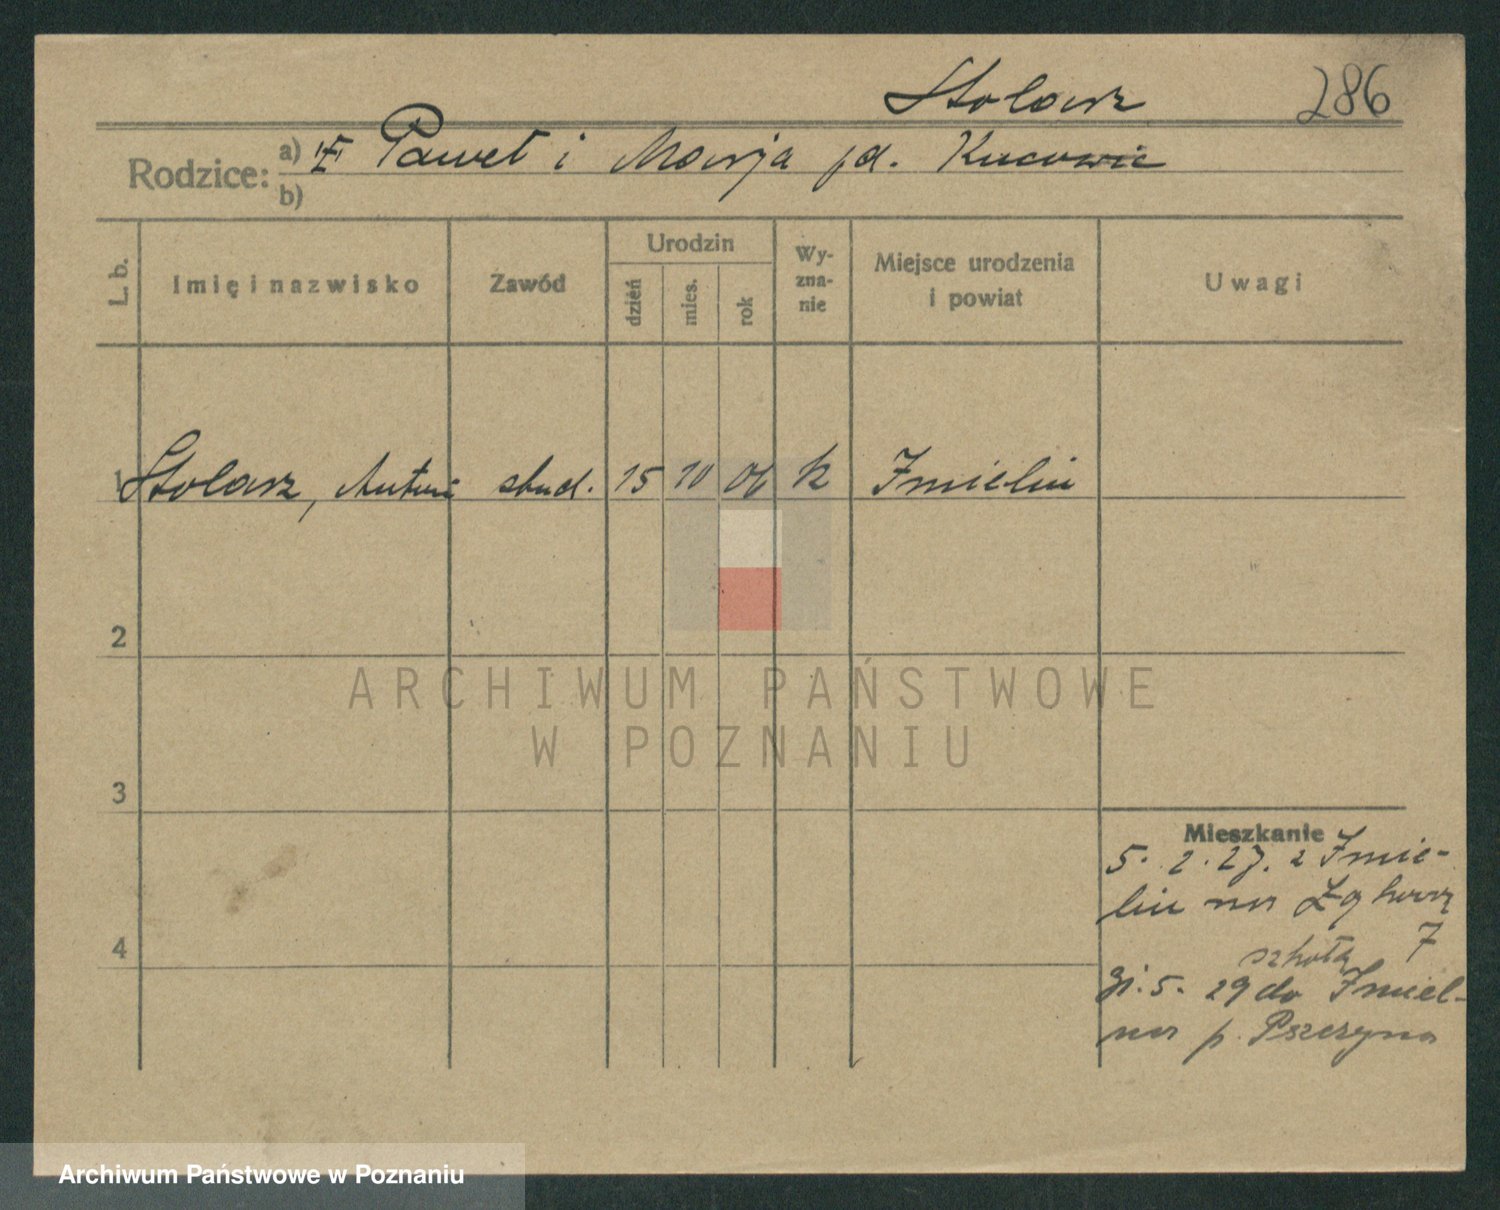 Stolarz
286
Rodzice:
a) Paweł i Marja
b)
L. b.
Imię i nazwisko
Zawód
Urodzin
dzień
mies.
rok
Wy-
zna-
nie
Miejsce urodzenia
i powiat
Uwagi
1 Stolarz, Antoni stud. 15 10 06 k Imielin
2
ARCHIWUM PAŃSTWOWE
W POZNANIU
3
Mieszkanie
5. 2. 27. z Imie-
lin na
7
4
szkołą
5. 29 do Imiel-
na p. Pszczyna
Archiwum Państwowe w Poznaniu